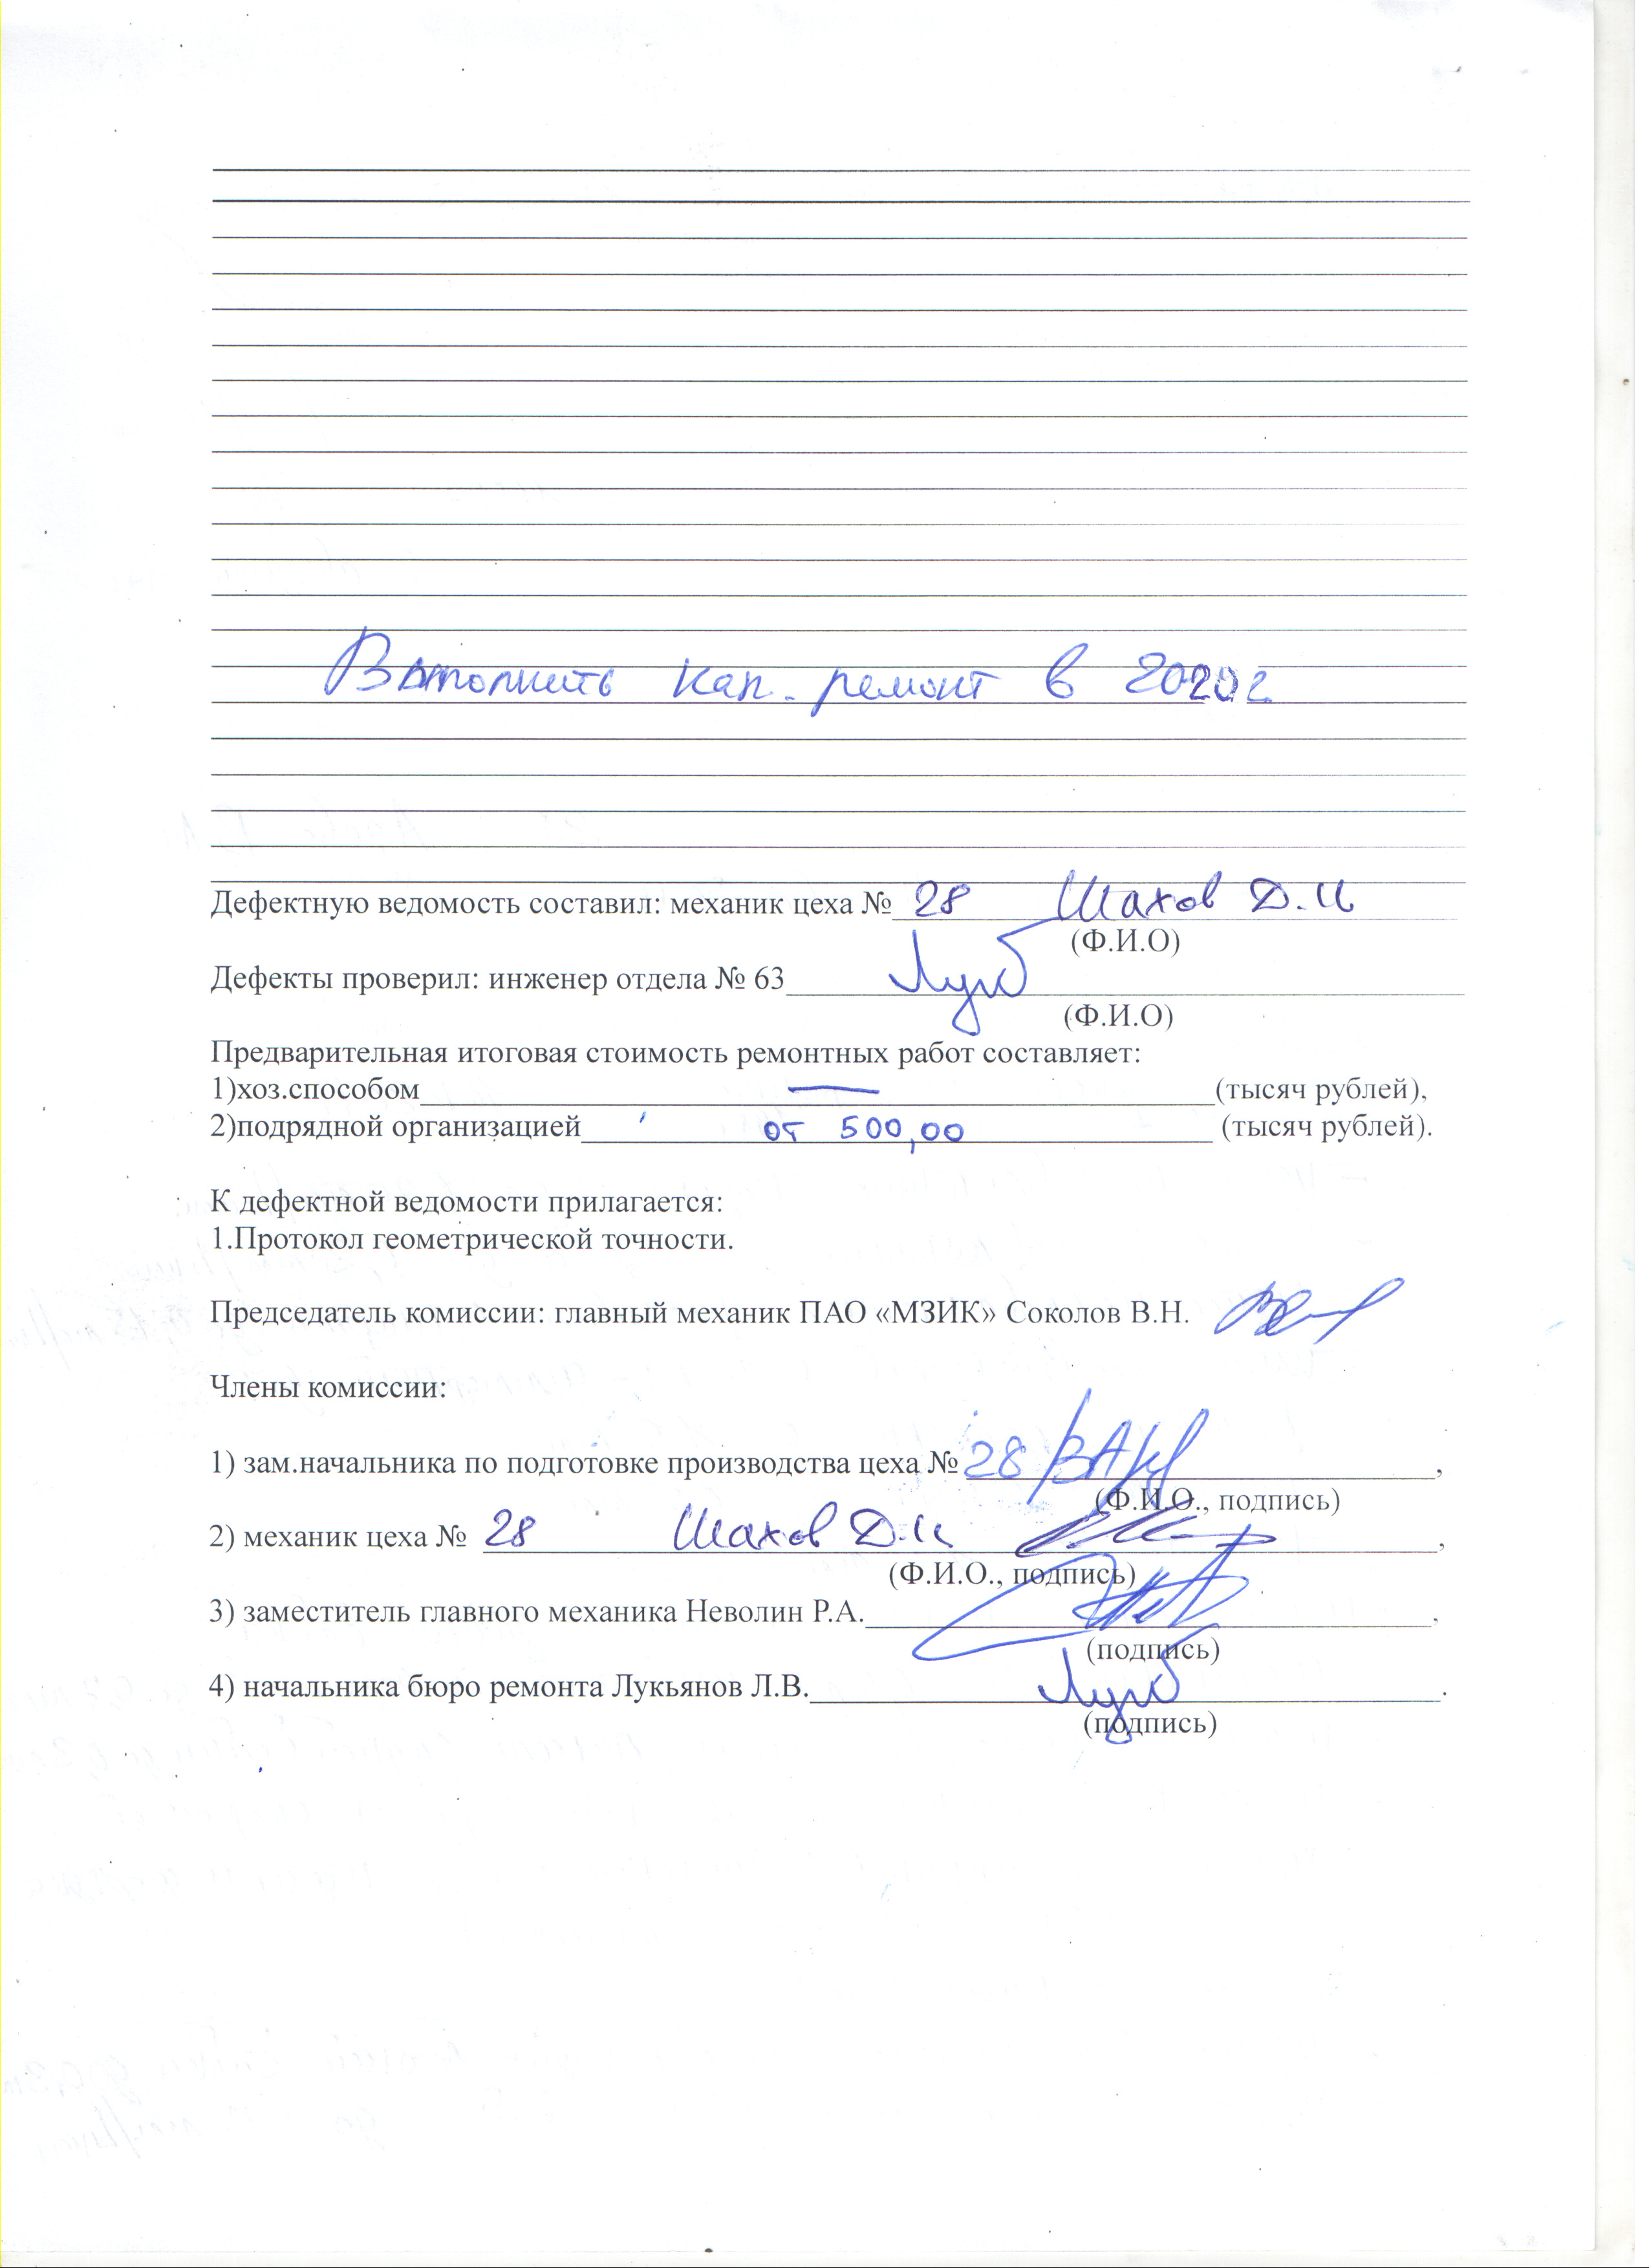 Выполнить кап. ремонт в 2020г
Дефектную ведомость составил: механик цеха № 28 Шахов Д.И
(Ф.И.О)
Дефекты проверил: инженер отдела № 63
(Ф.И.О)
Предварительная итоговая стоимость ремонтных работ составляет:
1)хоз.способом — (тысяч рублей),
2)подрядной организацией от 500,00 (тысяч рублей).
К дефектной ведомости прилагается:
1.Протокол геометрической точности.
Председатель комиссии: главный механик ПАО «МЗИК» Соколов В.Н.
Члены комиссии:
1) зам.начальника по подготовке производства цеха № 28
(Ф.И.О., подпись)
2) механик цеха № 28 Шахов Д.И
(Ф.И.О., подпись)
3) заместитель главного механика Неволин Р.А.
(подпись)
4) начальника бюро ремонта Лукьянов Л.В.
(подпись)